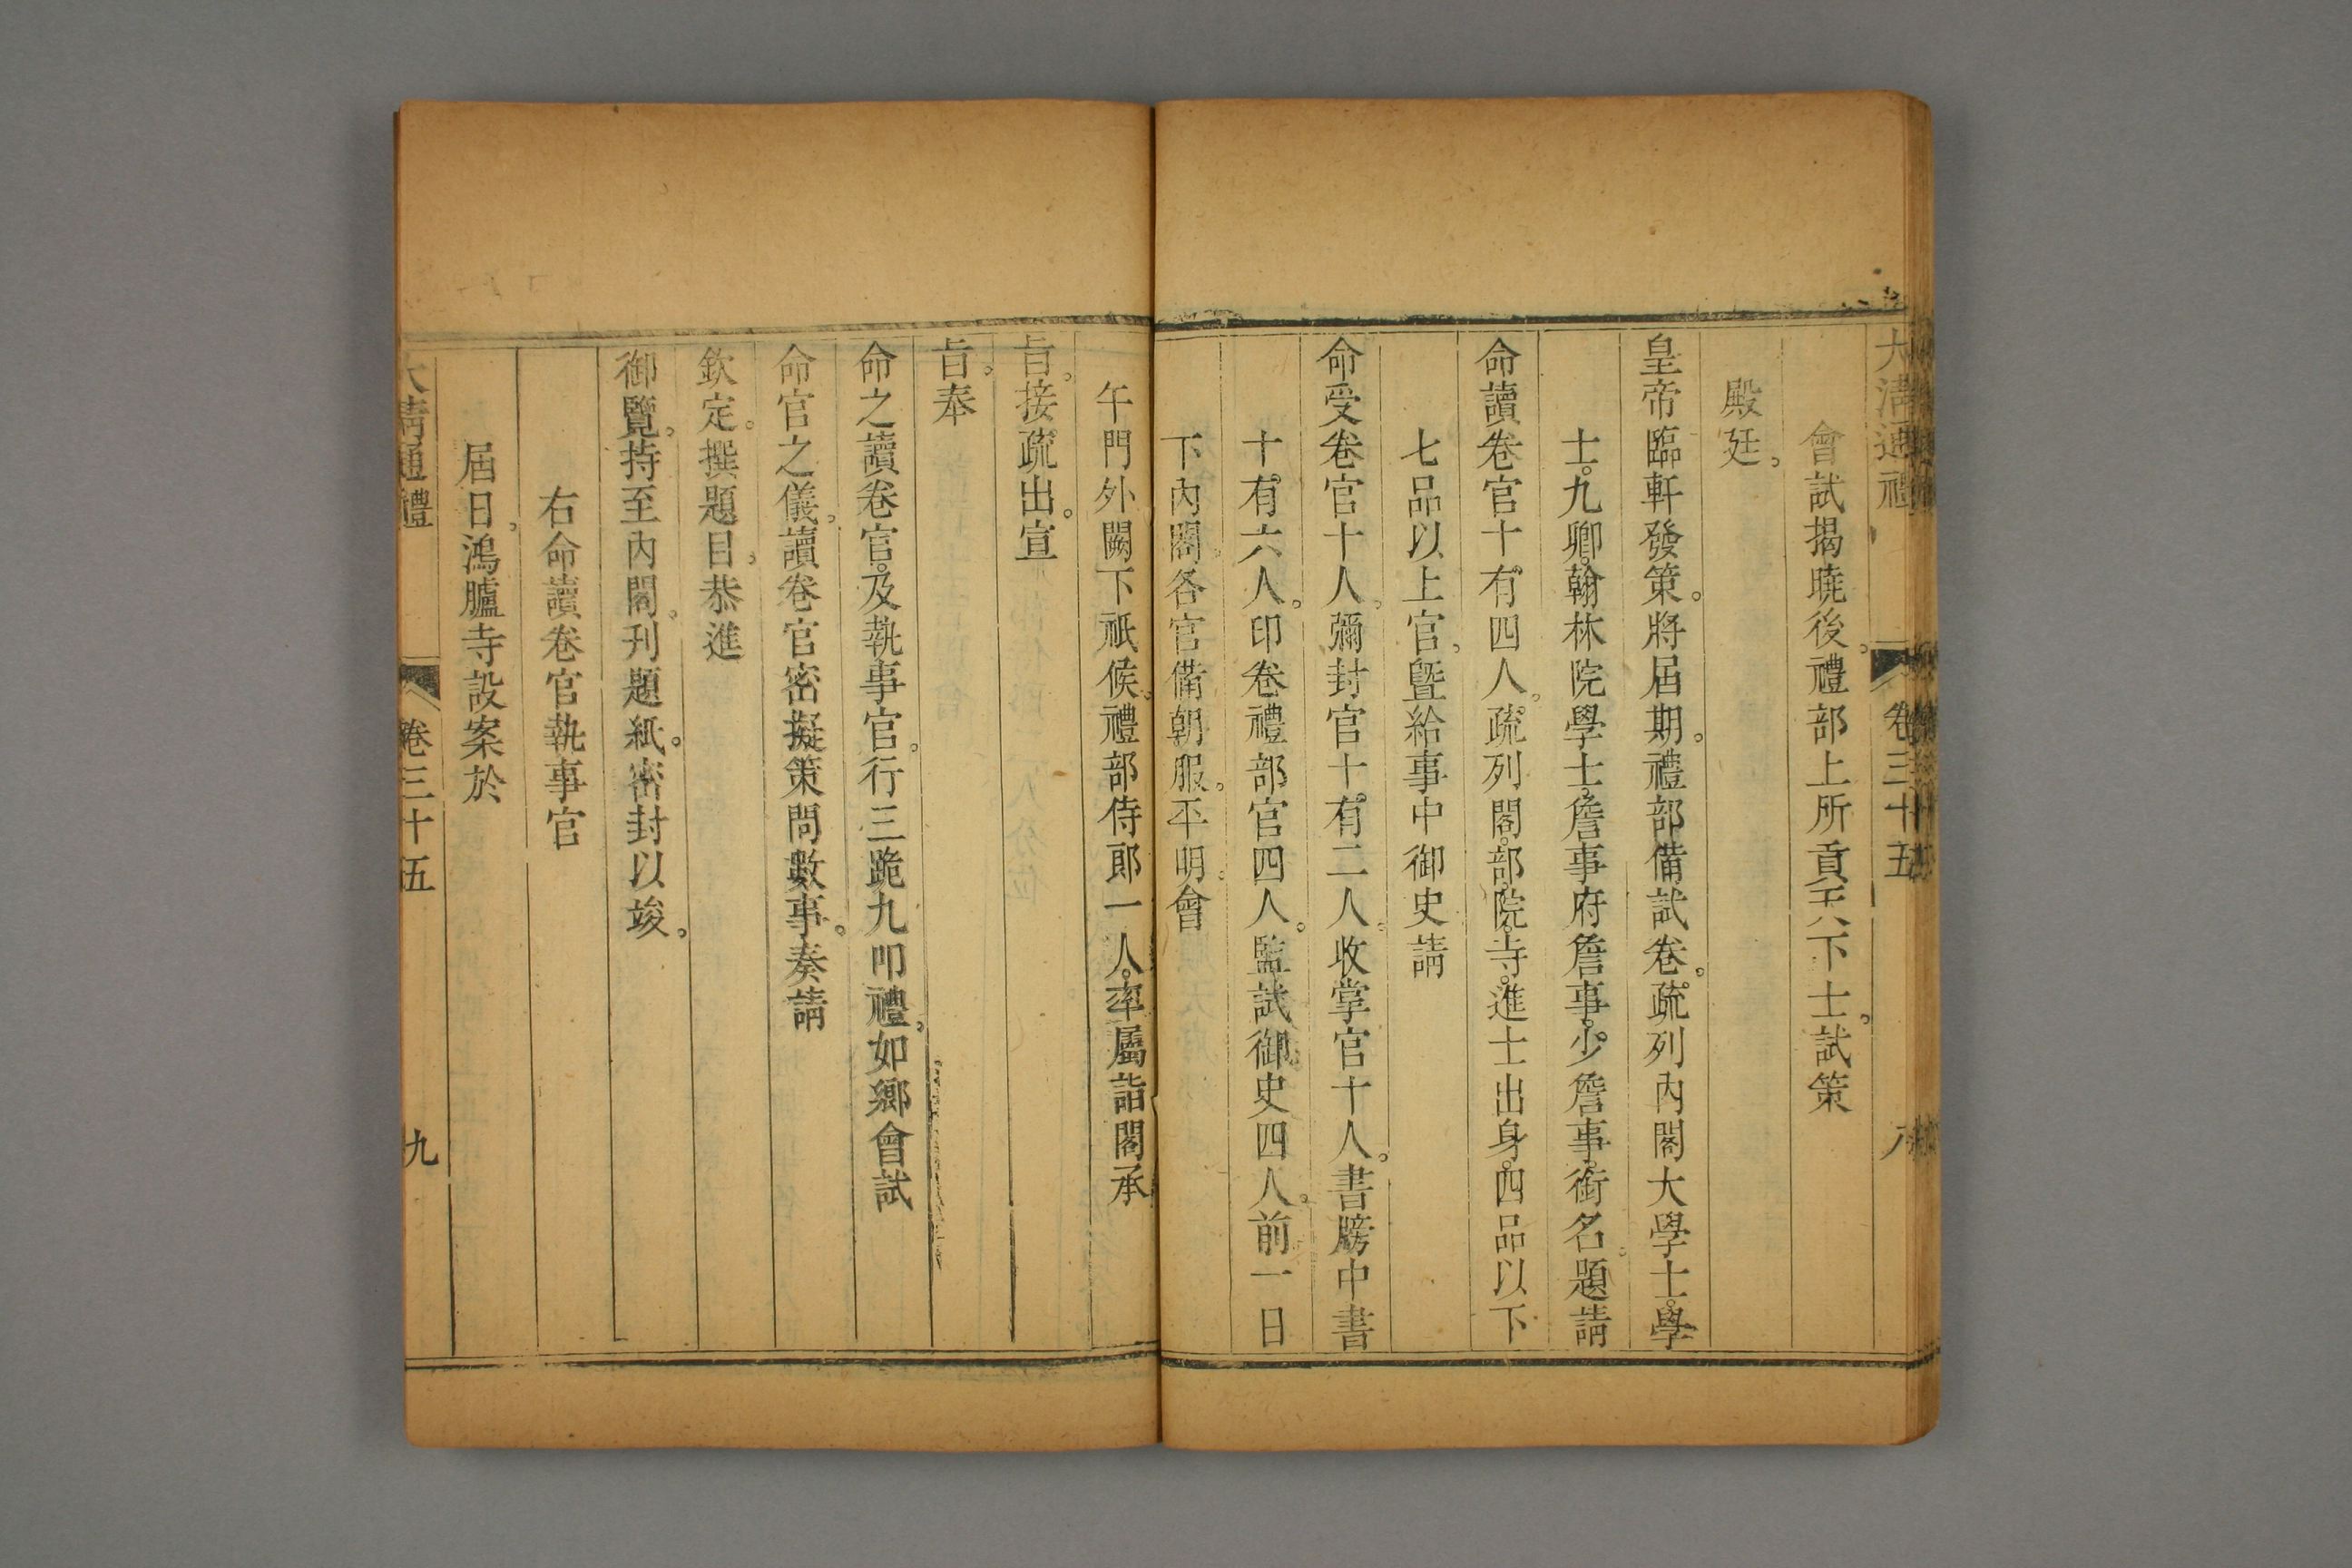 大清通禮 卷三十五 八
會試揭曉後。禮部上所貢至下士。試策
殿廷。
皇帝臨軒發策。將屆期。禮部備試卷。疏列內閣大學士。學
士。九卿。翰林院學士。詹事府詹事。少詹事。銜名。題請
命讀卷官十有四人。疏列閣。部。院。寺。進士出身。四品以下
七品以上官。曁給事中御史請
命受卷官十人。彌封官十有二人。收掌官十人。書牓中書
十有六人。印卷禮部官四人。監試御史四人。前一日
下內閣。各官備朝服。平明。會
午門外闕下祇候。禮部侍郎一人。率屬詣閣承
旨。接疏出。宣
旨。奉
命之讀卷官。及執事官。行三跪九叩禮。如鄉會試
命官之儀。讀卷官密擬策問數事。奏請
欽定。撰題目。恭進
御覽。持至內閣。刊題紙。密封以竢。
右命讀卷官執事官
屆日。鴻臚寺設案於
大清通禮 卷三十五 九